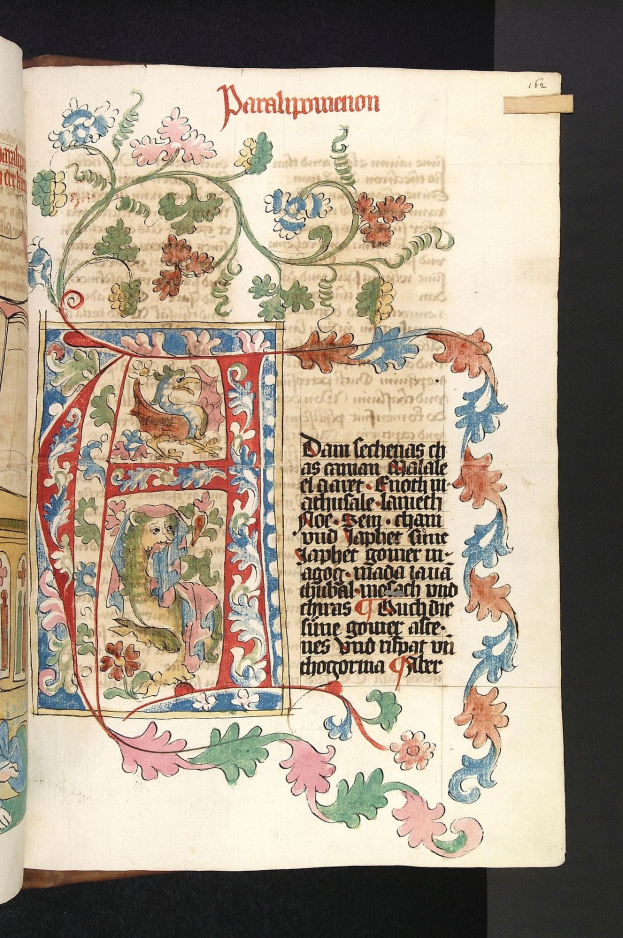 162
Paralipomenon
A
Dam sechenas ch
as cainan Malale
el iaret · Enoch m
athusale · lamech
Noe · Sem · cham
vnd Japhet Sūne
Japhet gomer m
agog · mada iaua
chubal · mosoch vnd
thiras ¶ Auch die
sūne gomer asce·
nes vnd riphat vn
thogorma ¶ Aber